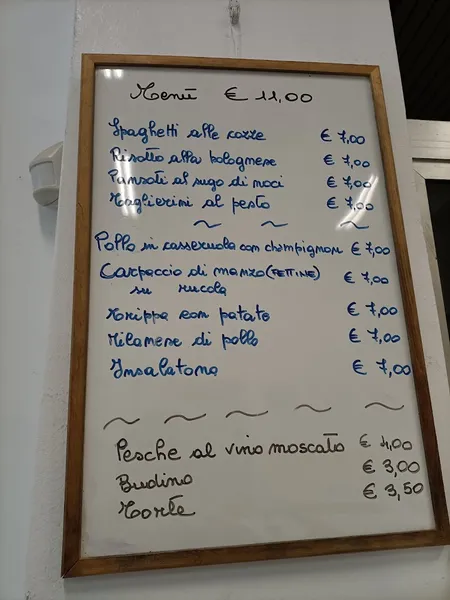 Menù € 11,00
Spaghetti alle cozze € 7,00
Risotto alla bolognese € 7,00
Pansoti al sugo di noci € 7,00
Taglierini al pesto € 7,00
Pollo in casseruola con champignon € 7,00
Carpaccio di manzo (FETTINE) € 7,00
su rucola
Trippa con patate € 7,00
Milanese di pollo € 7,00
Insalatona € 7,00
Pesche al vino moscato € 4,00
Budino € 3,00
Torte € 3,50